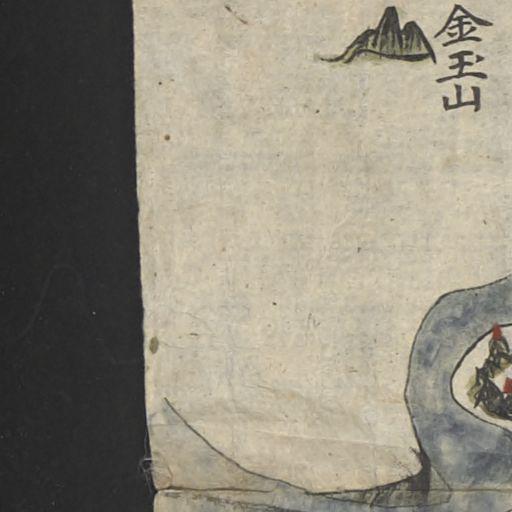 金玉山